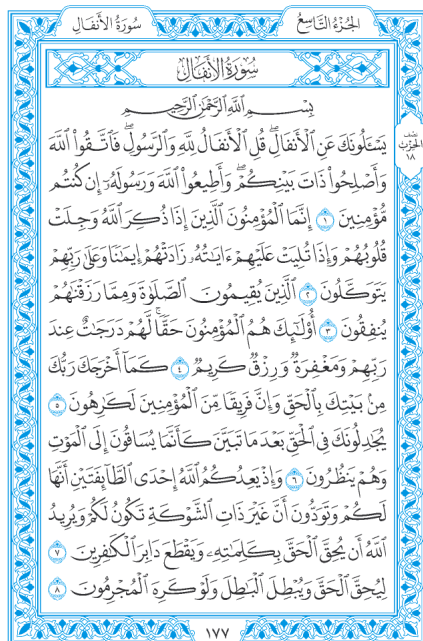 سُورَةُ الأَنفَالِ الجُزْءُ التَّاسِعُ
سُورَةُ الأَنفَالِ
بِسْمِ ٱللَّهِ ٱلرَّحْمَٰنِ ٱلرَّحِيمِ
يَسْـَٔلُونَكَ عَنِ ٱلْأَنفَالِۖ قُلِ ٱلْأَنفَالُ لِلَّهِ وَٱلرَّسُولِۖ فَٱتَّقُوا۟ ٱللَّهَ
نِصْف الحِزْب ١٨
وَأَصْلِحُوا۟ ذَاتَ بَيْنِكُمْۖ وَأَطِيعُوا۟ ٱللَّهَ وَرَسُولَهُۥٓ إِن كُنتُم
مُّؤْمِنِينَ ١ إِنَّمَا ٱلْمُؤْمِنُونَ ٱلَّذِينَ إِذَا ذُكِرَ ٱللَّهُ وَجِلَتْ
قُلُوبُهُمْ وَإِذَا تُلِيَتْ عَلَيْهِمْ ءَايَٰتُهُۥ زَادَتْهُمْ إِيمَٰنًا وَعَلَىٰ رَبِّهِمْ
يَتَوَكَّلُونَ ٢ ٱلَّذِينَ يُقِيمُونَ ٱلصَّلَوٰةَ وَمِمَّا رَزَقْنَٰهُمْ
يُنفِقُونَ ٣ أُو۟لَٰٓئِكَ هُمُ ٱلْمُؤْمِنُونَ حَقًّاۚ لَّهُمْ دَرَجَٰتٌ عِندَ
رَبِّهِمْ وَمَغْفِرَةٌ وَرِزْقٌ كَرِيمٌ ٤ كَمَآ أَخْرَجَكَ رَبُّكَ
مِنۢ بَيْتِكَ بِٱلْحَقِّ وَإِنَّ فَرِيقًا مِّنَ ٱلْمُؤْمِنِينَ لَكَٰرِهُونَ ٥
يُجَٰدِلُونَكَ فِى ٱلْحَقِّ بَعْدَ مَا تَبَيَّنَ كَأَنَّمَا يُسَاقُونَ إِلَى ٱلْمَوْتِ
وَهُمْ يَنظُرُونَ ٦ وَإِذْ يَعِدُكُمُ ٱللَّهُ إِحْدَى ٱلطَّآئِفَتَيْنِ أَنَّهَا
لَكُمْ وَتَوَدُّونَ أَنَّ غَيْرَ ذَاتِ ٱلشَّوْكَةِ تَكُونُ لَكُمْ وَيُرِيدُ
ٱللَّهُ أَن يُحِقَّ ٱلْحَقَّ بِكَلِمَٰتِهِۦ وَيَقْطَعَ دَابِرَ ٱلْكَٰفِرِينَ ٧
لِيُحِقَّ ٱلْحَقَّ وَيُبْطِلَ ٱلْبَٰطِلَ وَلَوْ كَرِهَ ٱلْمُجْرِمُونَ ٨
١٧٧